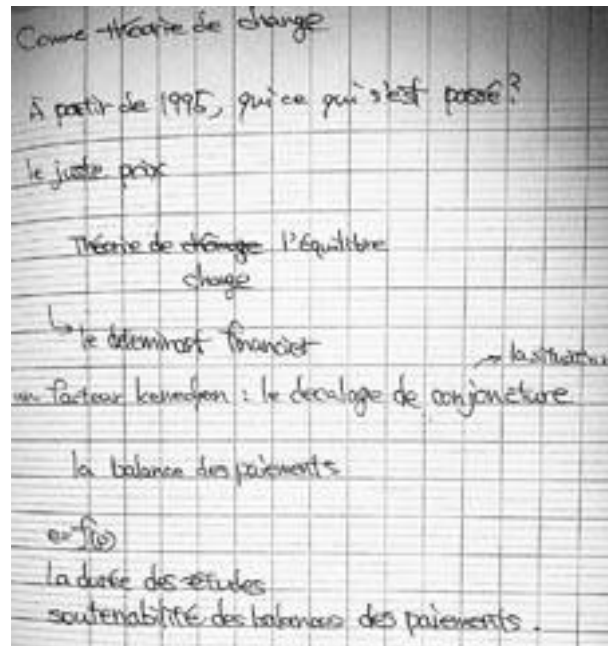 Comme théorie de change
À partir de 1995, qui ce qui s'est passé ?
le juste prix
Théorie de change l'Équilibre
change
le déterminant financier
un facteur : le décalage de conjoncture
la situation
la balance des paiements
la durée des études
soutenabilité des balances des paiements.